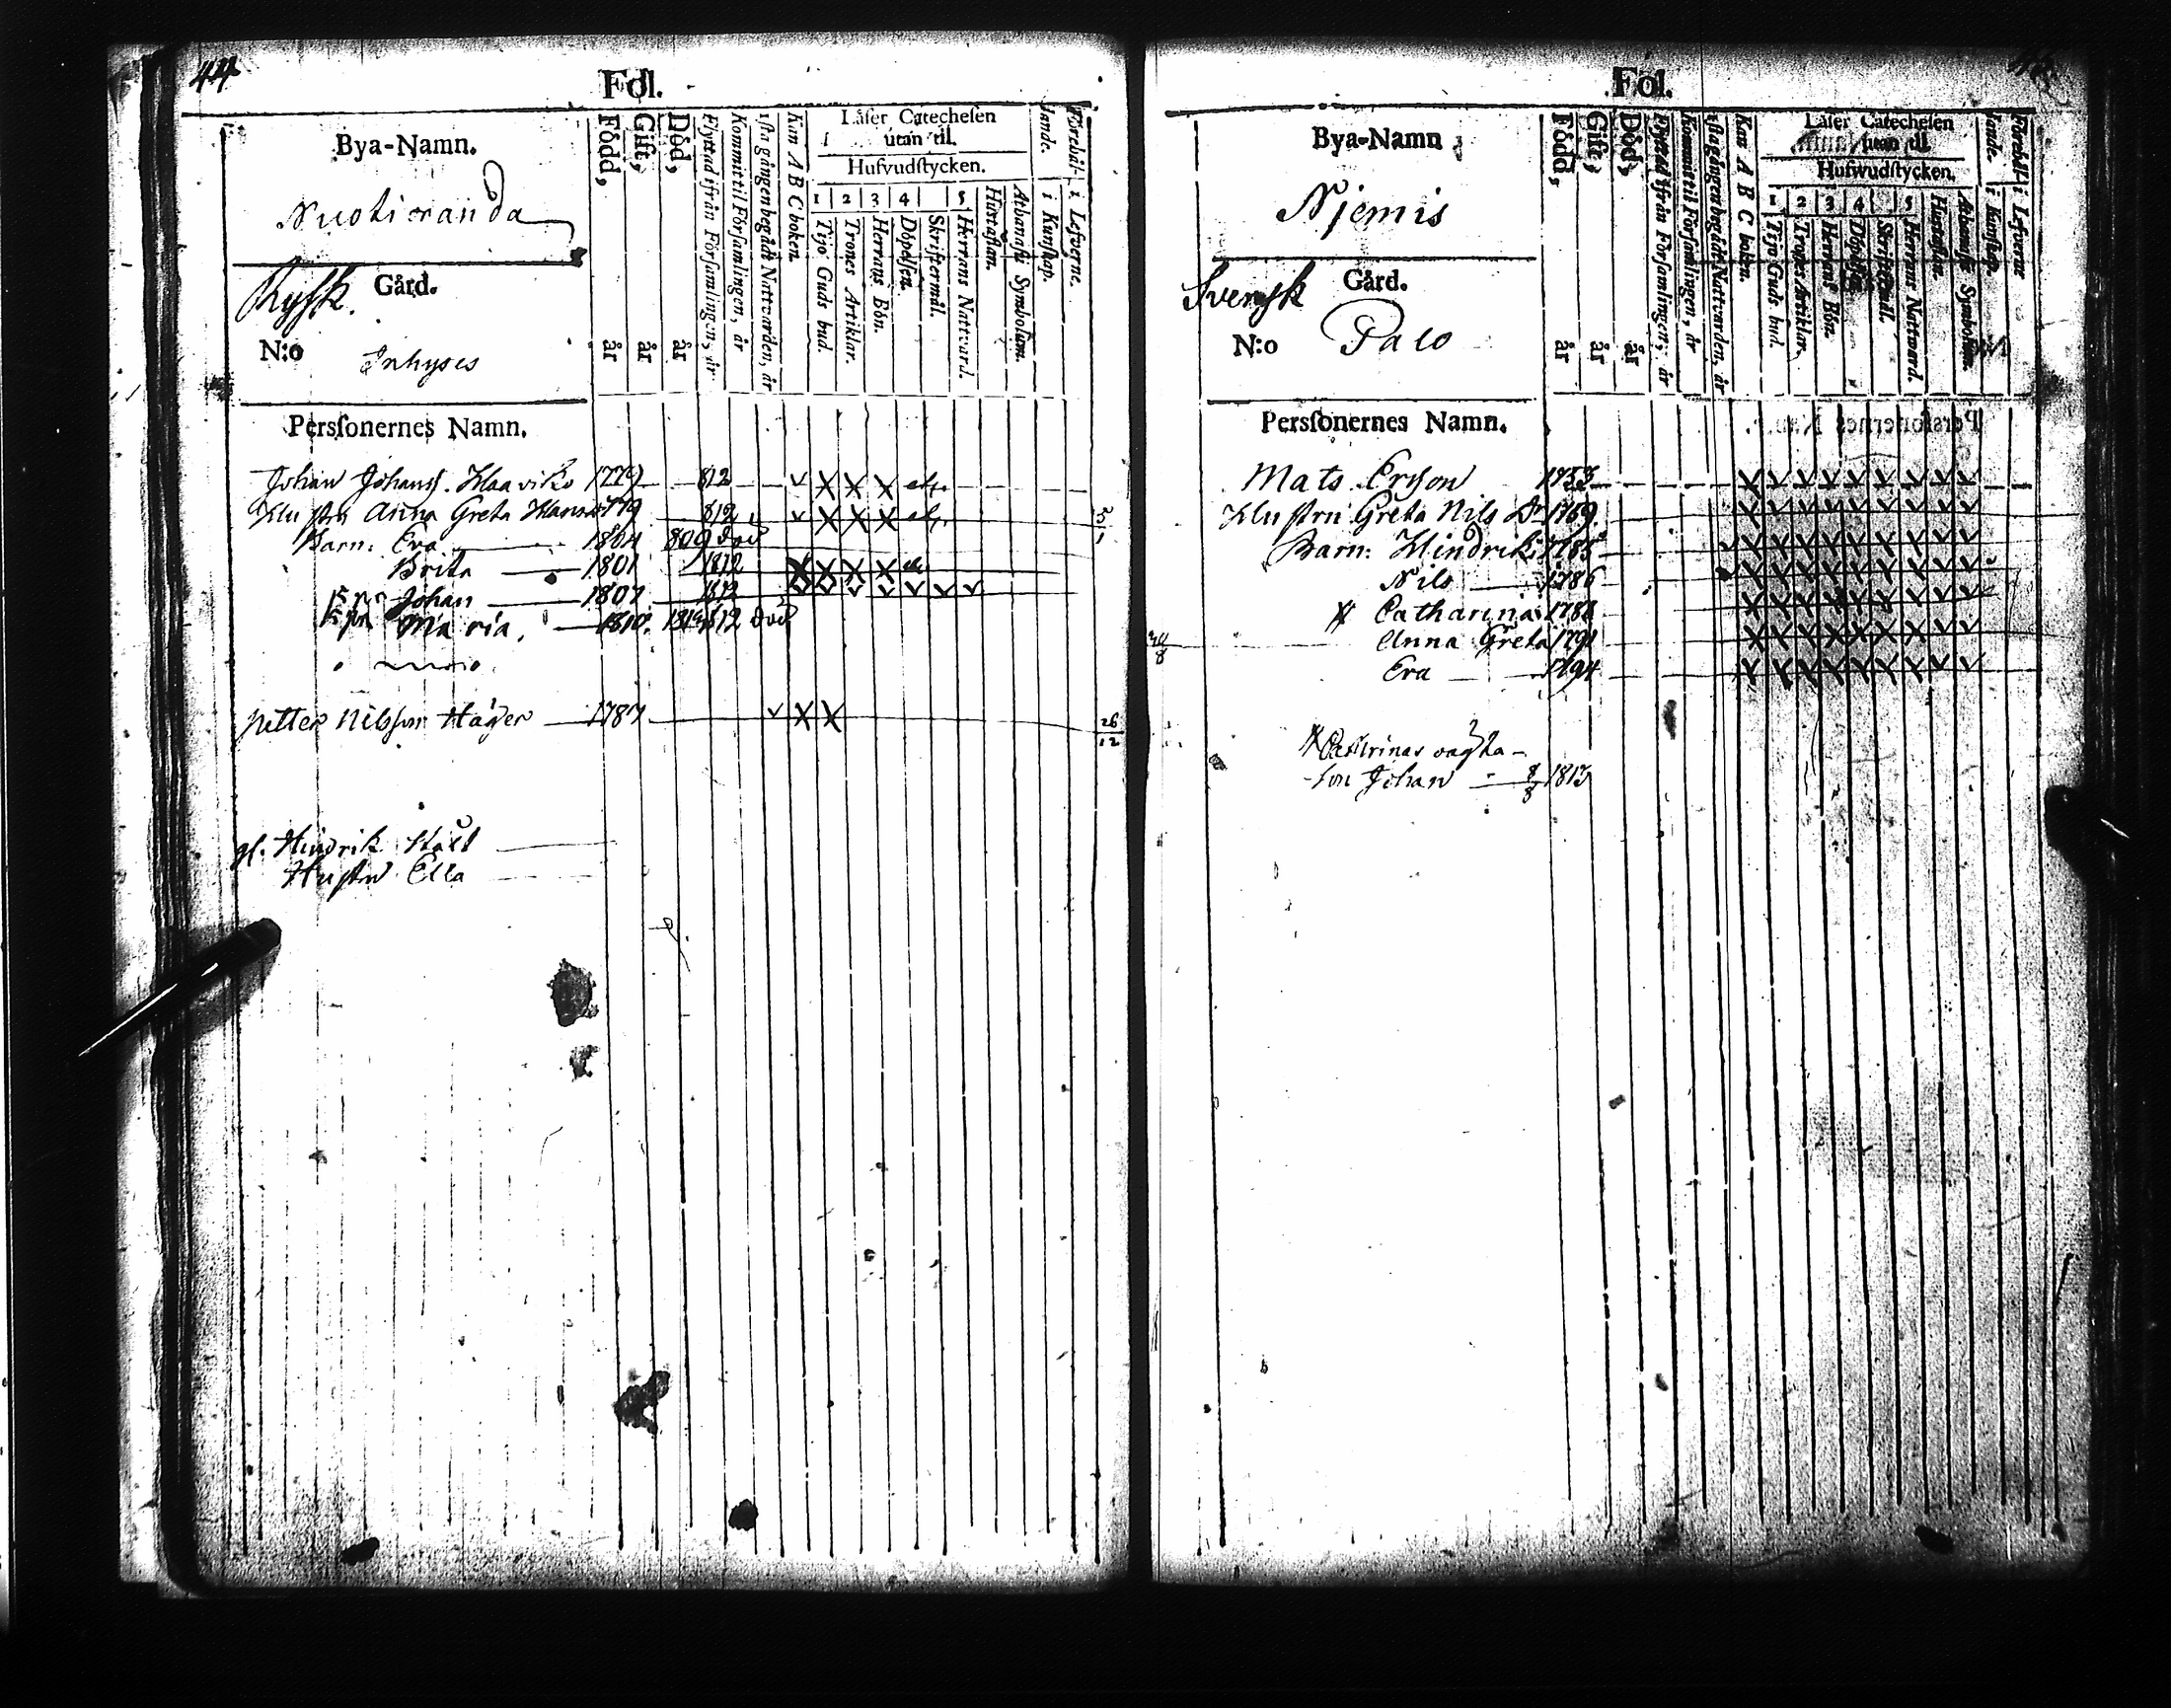 44
Fol.
Bya-Namn.
Nuotioranda
Rysk.
Gård.
N:o
Inhyses
Född, år
Gift, år
Död, år
Flyttad ifrån Församlingen, år
Kommit til Församlingen, år
1sta gången begådt Nattvarden, år
Kan A B C boken.
Läser Catechesen
utan til.
Hufvudstycken.
1 2 3 4 5
Tijo Guds bud.
Trones Artiklar.
Herrans Bön.
Döpelsen.
Skriftermål.
Herrans Nattvard.
Hustaflan.
Athanasii Symbolum.
i Kunskap.
i Lefverne.
Persfonernes Namn.
Johan Johans. 1779 812
Hustru Anna Greta 1779 812
Barn: Eva 1804 809 död
Brita 1801 1812
Johan 1807 1812
Maria, 1810. 812 död
Petter Nilsson Häger 1787
26
12
gl. Hindrik
Hustru Ella
Fol.
Bya-Namn
Njemis
Svensk
Gård.
N:o
Palo
Född, år
Gift, år
Död, år
Flyttad ifrån Församlingen, år
Kommit til Församlingen, år
1sta gången begådt Nattvarden, år
Kan A B C boken.
Läser Catechesen
utan til.
Hufwudstycken.
1 2 3 4 5
Tijo Guds bud.
Trones Artiklar.
Herrans Bön.
Döpelsen.
Skriftermål.
Herrans Nattward.
Hustaflan.
Athanasii Symbolum.
i Kunskap.
i Lefverne
Persfonernes Namn.
Mats Erson 1753
Hustru Greta Nils Dr 1759
Barn: Hindrik 1785
Nils 1786
Catharina 1788
Anna Greta 1791
Eva 1794
Cathrinas oägta
son Johan 8/8 1813